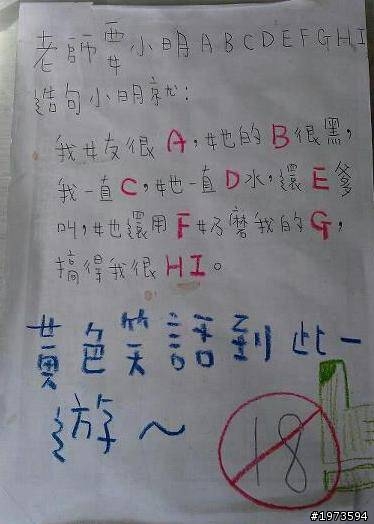 老師要小明ABCDEFGHI
造句小明就:
我女友很A,她的B很黑,
我一直C,她一直D水,還E爹
叫,她還用F奶磨我的G,
搞得我很HI。
黃色笑話到此一
遊～
18
#1973594